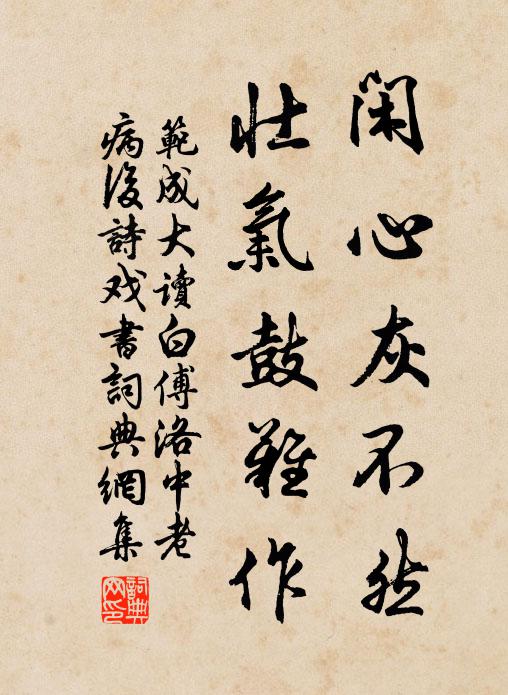 闲心灰不然
壮氣鼓難作
範成大讀白傅洛中老
病後詩戏書詞典網集
詞典网印